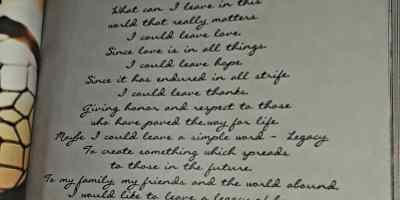 What can I leave in this
world that really matters
I could leave love.
Since love is in all things
I could leave hope
Since it has endured in all strife
I could leave thanks.
Giving honor and respect to those
who have paved the way for life
Maybe I could leave a simple word - Legacy
To create something which spreads
to those in the future.
To my family, my friends and the world abound
I would like to leave a legacy of